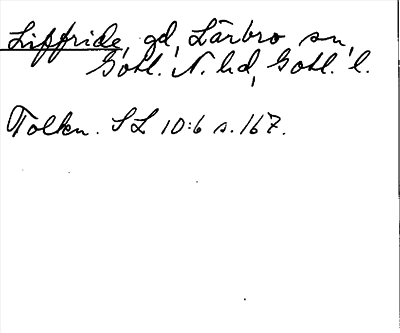 Liffride, gd, Lärbro sn,
Gotl. N. hd, Gotl. l.
Tolkn. SL 10:6 s. 167.